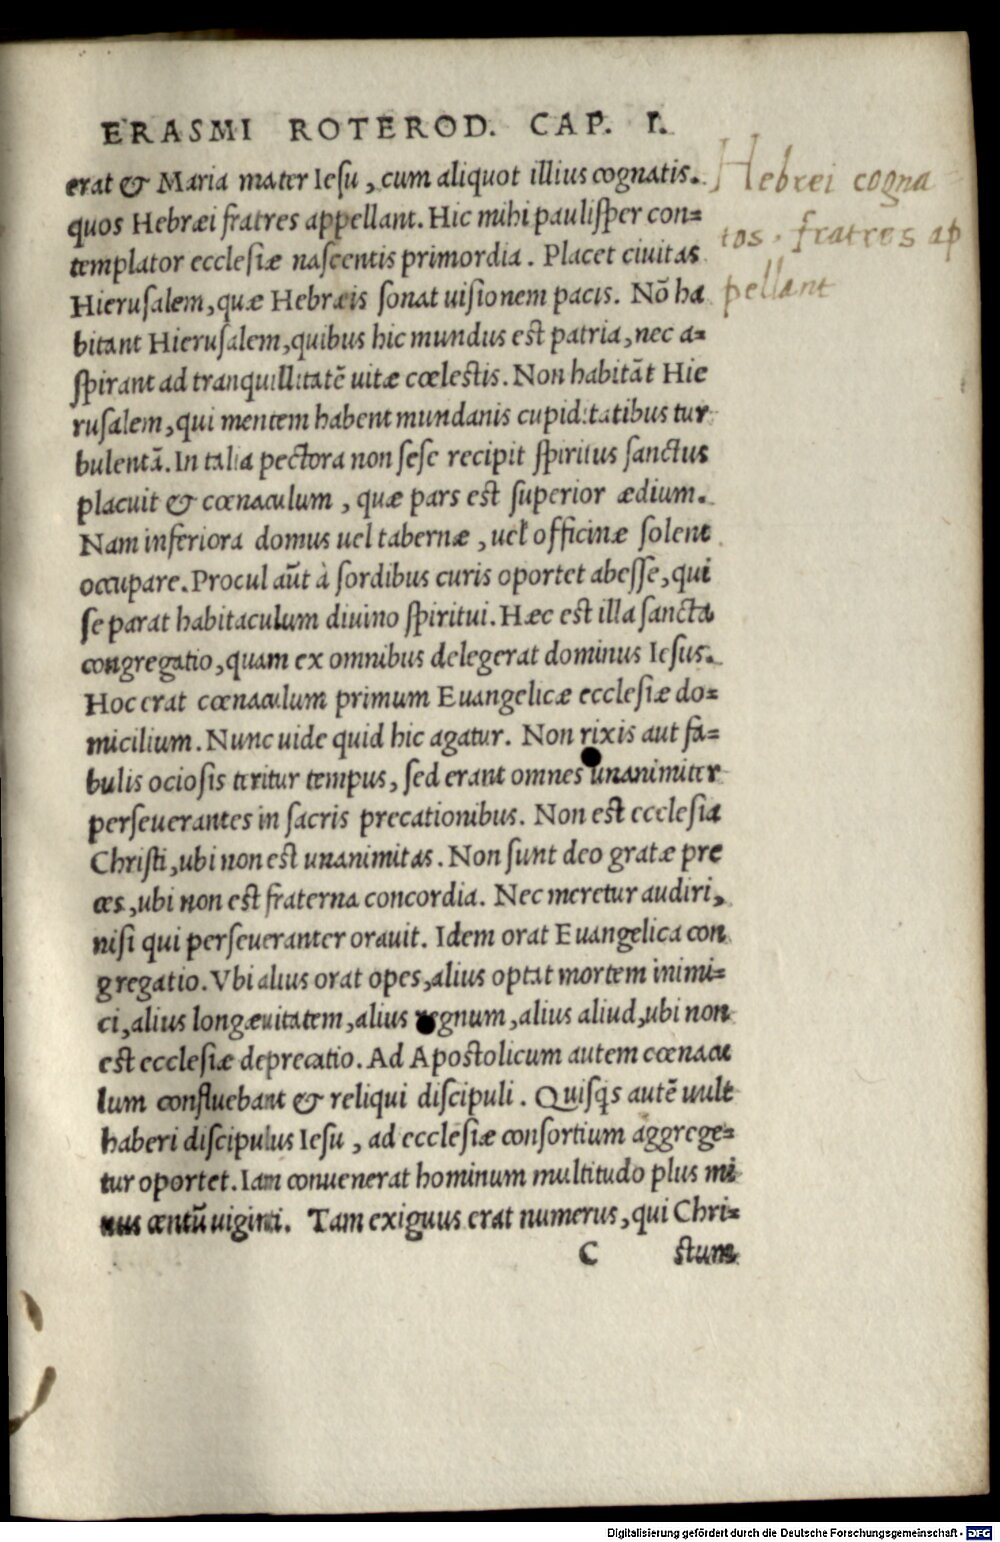 ERASMI ROTEROD. CAP. I.
erat & Maria mater Iesu, cum aliquot illius cognatis.
quos Hebræi fratres appellant. Hic mihi paulisper con=
templator ecclesiæ nascentis primordia. Placet ciuitas
Hierusalem, quæ Hebræis sonat uisionem pacis. Nõ ha
bitant Hierusalem, quibus hic mundus est patria, nec a=
spirant ad tranquillitatẽ uitæ cœlestis. Non habitãt Hie
rusalem, qui mentem habent mundanis cupiditatibus tur
bulentã. In talia pectora non sese recipit spiritus sanctus
placuit & cœnaculum, quæ pars est superior ædium.
Nam inferiora domus uel tabernæ, uel officinæ solent
occupare. Procul aũt à sordibus curis oportet abesse, qui
se parat habitaculum diuino spiritui. Hæc est illa sancta
congregatio, quam ex omnibus delegerat dominus Iesus.
Hoc erat cœnaculum primum Euangelicæ ecclesiæ do=
micilium. Nunc uide quid hic agatur. Non rixis aut fa=
bulis ociosis teritur tempus, sed erant omnes unanimiter
perseuerantes in sacris precationibus. Non est ecclesia
Christi, ubi non est unanimitas. Non sunt deo gratæ pre
ces, ubi non est fraterna concordia. Nec meretur audiri,
nisi qui perseueranter orauit. Idem orat Euangelica con
gregatio. Vbi alius orat opes, alius optat mortem inimi=
ci, alius longæuitatem, alius regnum, alius aliud, ubi non
est ecclesiæ deprecatio. Ad Apostolicum autem cœnacu
lum confluebant & reliqui discipuli. Quisq̃s autẽ uult
haberi discipulus Iesu, ad ecclesiæ consortium aggrege=
tur oportet. Iam conuenerat hominum multitudo plus mi
nus centũ uiginti. Tam exiguus erat numerus, qui Chri=
C stum
Hebrei cogna
tos. fratres ap
pellant
Digitalisierung gefördert durch die Deutsche Forschungsgemeinschaft - DFG